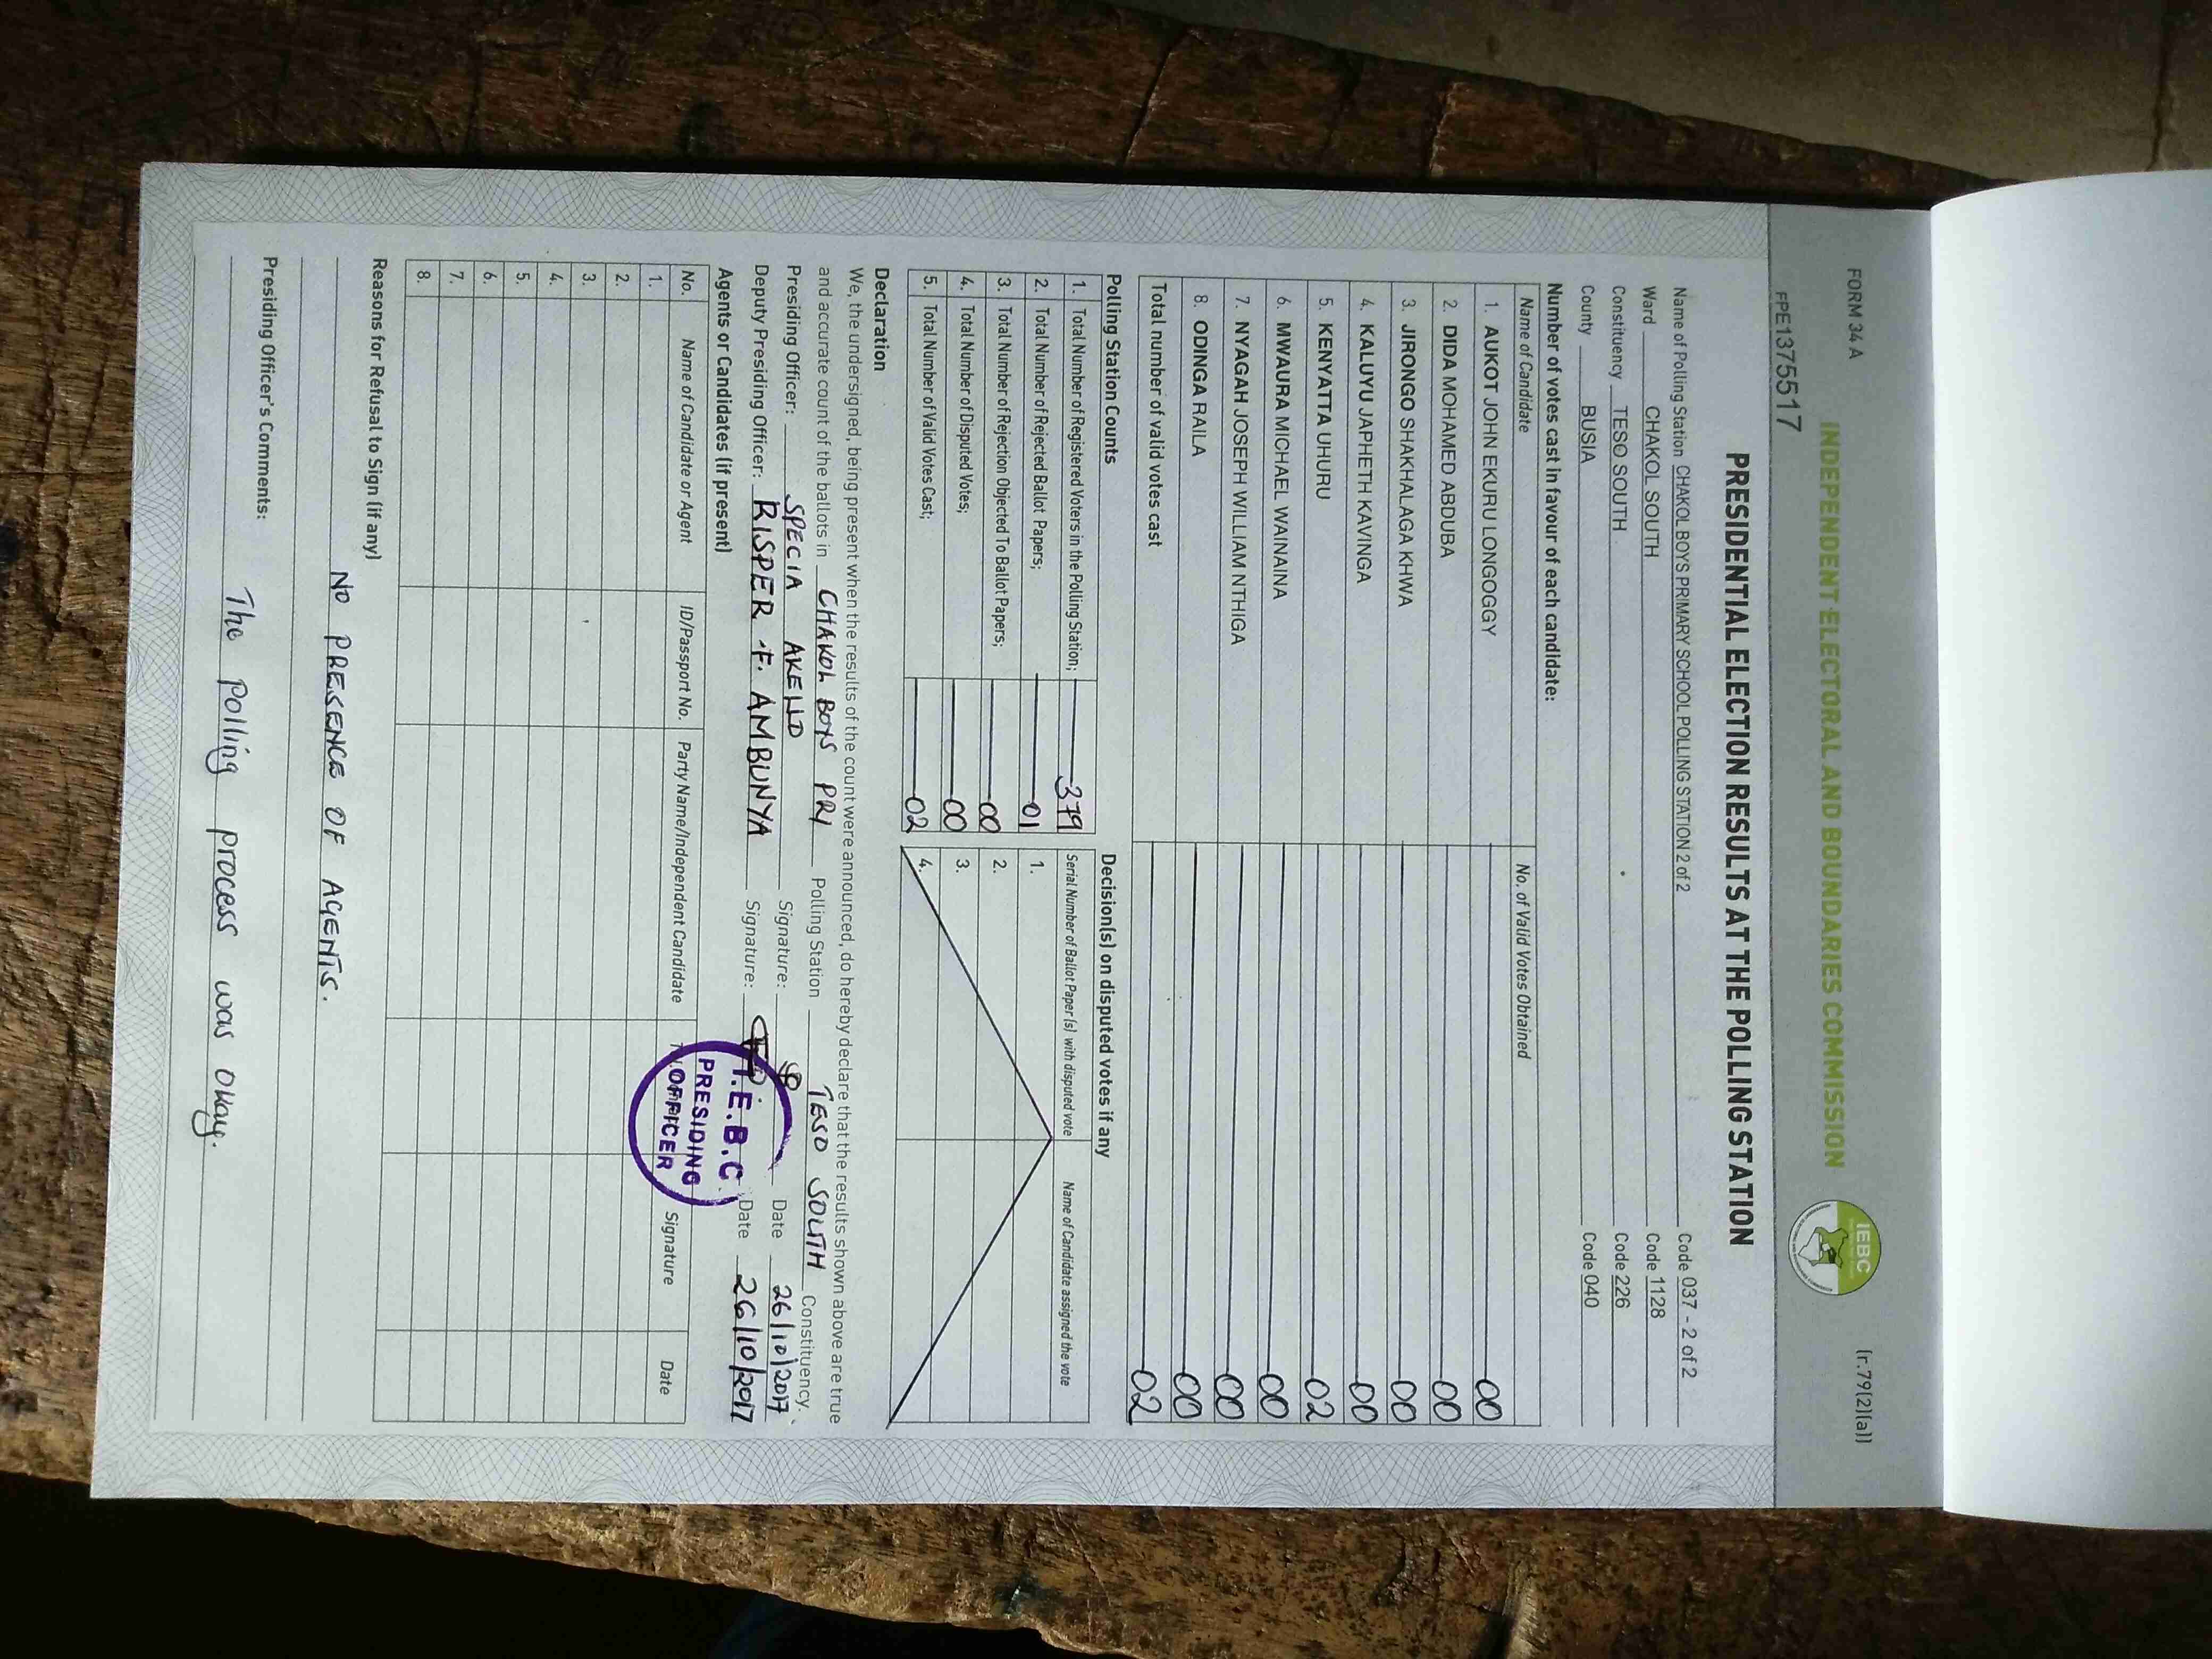 FORM 34 A
(r.79(2)(a))
INDEPENDENT ELECTORAL AND BOUNDARIES COMMISSION
IEBC
FPE1375517
PRESIDENTIAL ELECTION RESULTS AT THE POLLING STATION
Name of Polling Station CHAKOL BOYS PRIMARY SCHOOL POLLING STATION 2 of 2 Code 037 - 2 of 2
Ward CHAKOL SOUTH Code 1128
Constituency TESO SOUTH Code 226
County BUSIA Code 040
Number of votes cast in favour of each candidate:
Name of Candidate No. of Valid Votes Obtained
1. AUKOT JOHN EKURU LONGOGGY 00
2. DIDA MOHAMED ABDUBA 00
3. JIRONGO SHAKHALAGA KHWA 00
4. KALUYU JAPHETH KAVINGA 00
5. KENYATTA UHURU 02
6. MWAURA MICHAEL WAINAINA 00
7. NYAGAH JOSEPH WILLIAM NTHIGA 00
8. ODINGA RAILA 00
Total number of valid votes cast 02
Polling Station Counts
1. Total Number of Registered Voters in the Polling Station; 379
2. Total Number of Rejected Ballot Papers; 01
3. Total Number of Rejection Objected To Ballot Papers; 00
4. Total Number of Disputed Votes; 00
5. Total Number of Valid Votes Cast; 02
Decision(s) on disputed votes if any
Serial Number of Ballot Paper (s) with disputed vote Name of Candidate assigned the vote
1.
2.
3.
4.
Declaration
We, the undersigned, being present when the results of the count were announced, do hereby declare that the results shown above are true
and accurate count of the ballots in CHAKOL BOYS PRI Polling Station TESO SOUTH Constituency.
Presiding Officer: SPECIA AKELLO Signature: Date 26/10/2017
Deputy Presiding Officer: RISPER .F. AMBUNYA Signature: Date 26/10/2017
I.E.B.C.
PRESIDING
OFFICER
Agents or Candidates (if present)
No. Name of Candidate or Agent ID/Passport No. Party Name/Independent Candidate Signature Date
1.
2.
3.
4.
5.
6.
7.
8.
Reasons for Refusal to Sign (if any)
NO PRESENCE OF AGENTS.
Presiding Officer's Comments:
The polling process was okay.